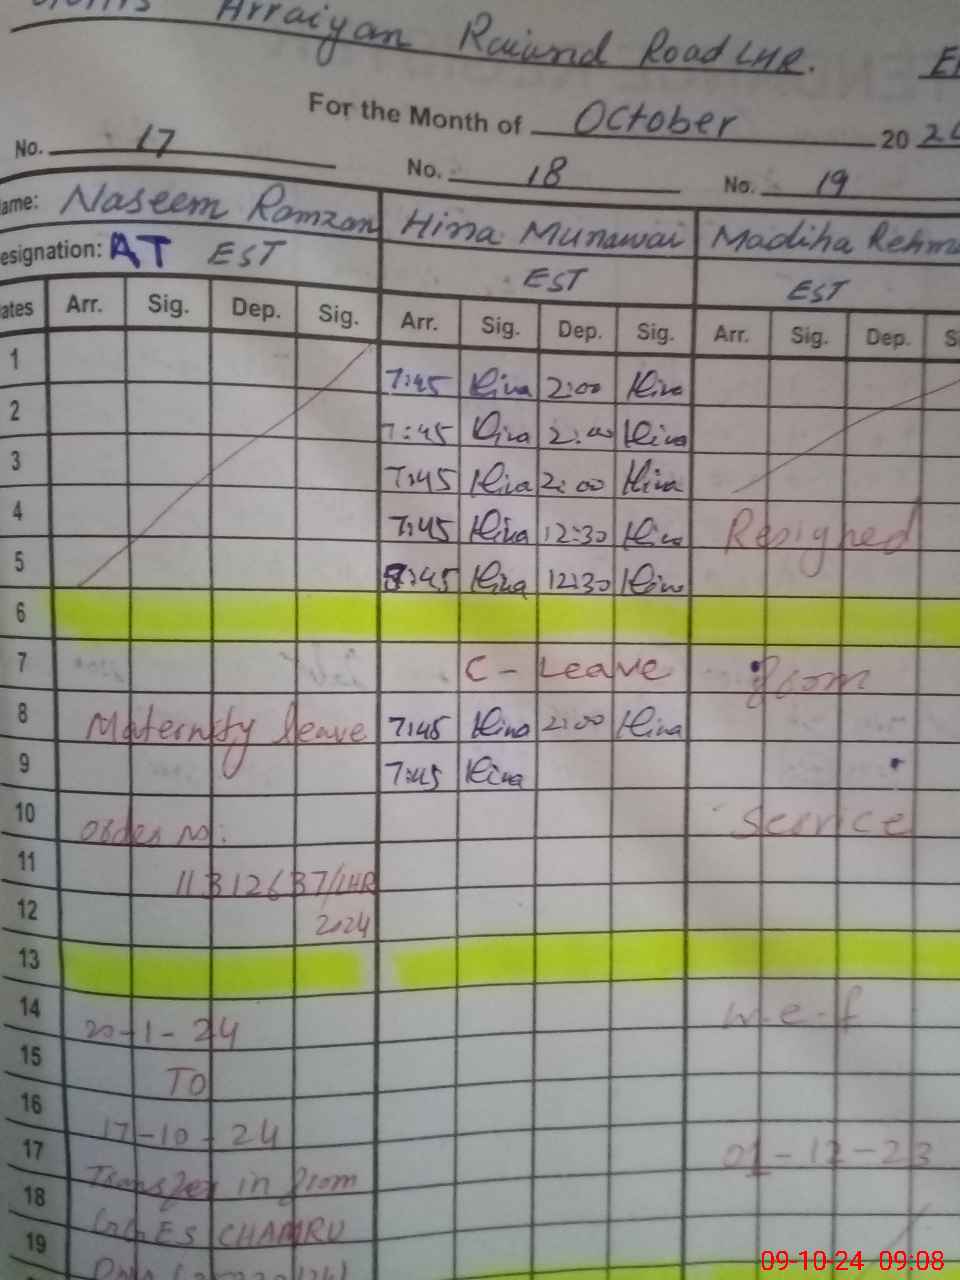 Arraiyan Raiund Road LHR.
For the Month of October 20
No. 17 No. 18 No. 19
Name: Naseem Ramzan Hina Munawai Madiha Rehm
esignation: AT EST EST EST
ates Arr. Sig. Dep. Sig. Arr. Sig. Dep. Sig. Arr. Sig. Dep. S
1 7:45 Hina 2:00 Hina
2 7:45 Hina 2:00 Hina
3 7:45 Hina 2:00 Hina
4 7:45 Hina 12:30 Hina Resigned
5 7:45 Hina 12:30 Hina
6
7 C - Leave from
8 Maternity leave 7:45 Hina 2:00 Hina
9 7:45 Hina
10 Order No: Service
11 11312637/LHR
12 2024
13
14 20-1-24 w.e.f
15 TO
16 17-10-24
17 Transfer in from 01-12-23
18 ES CHAMRU
19
09-10-24 09:08